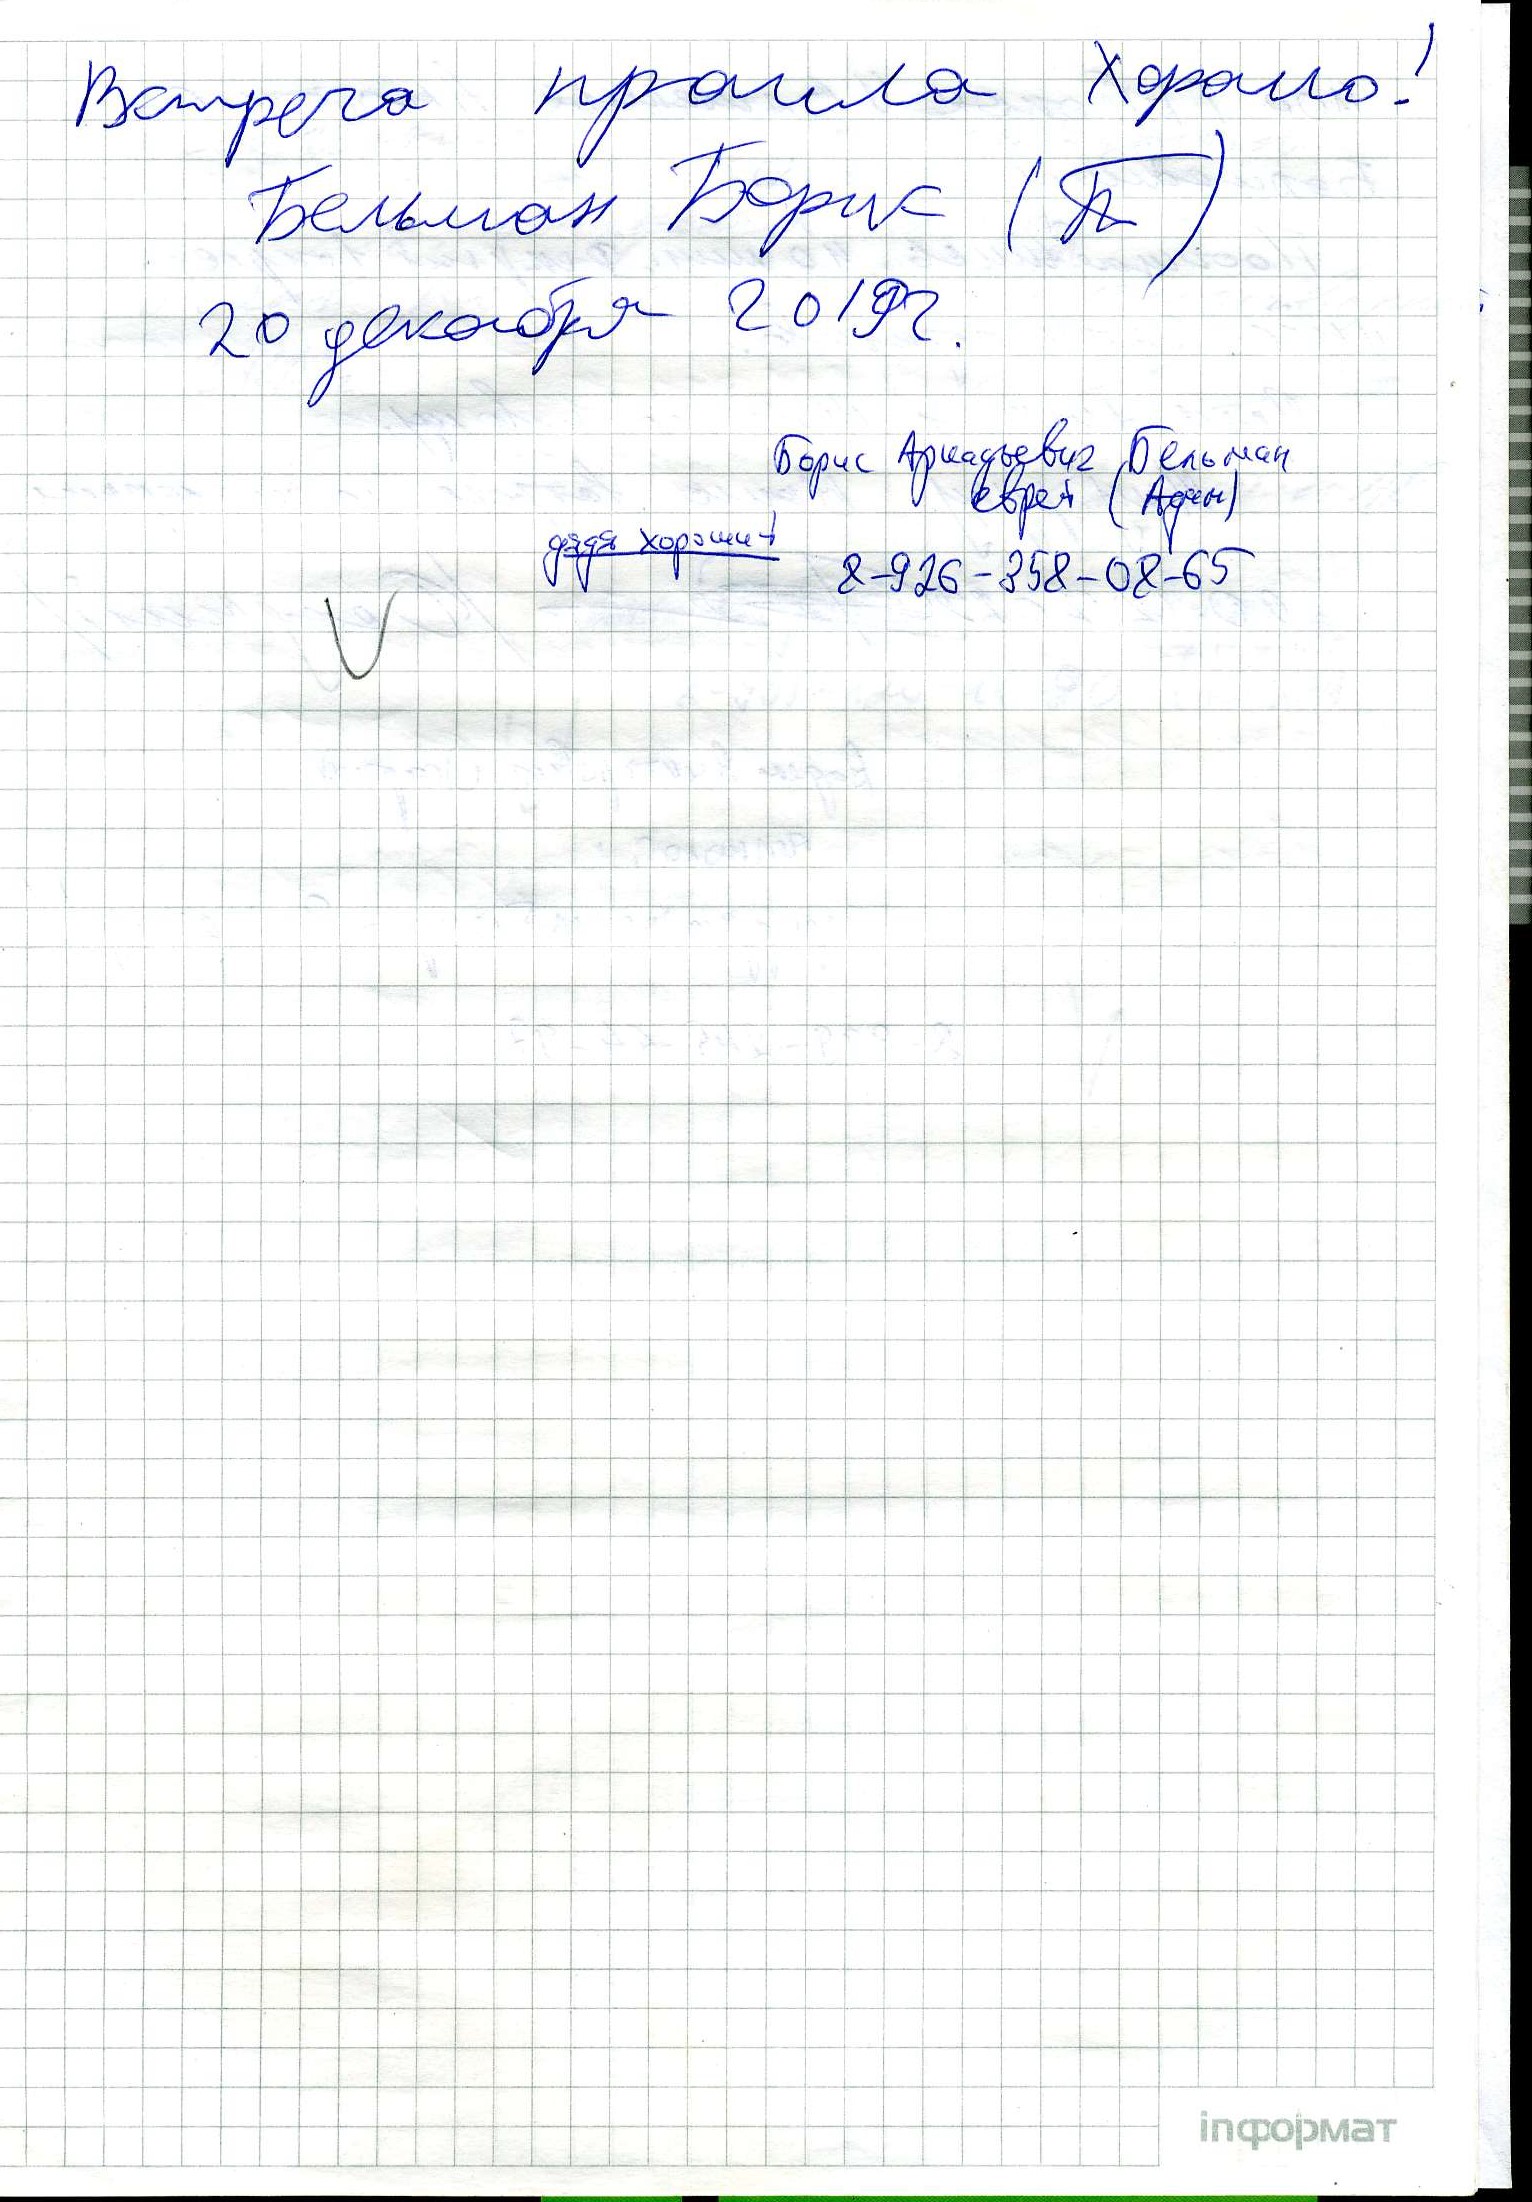 Встреча прошла хорошо!
Бельман Борис (П)
20 декабря 2019г.
Борис Аркадьевич Бельман
еврей (Адам)
дядя хороший
8-926-358-08-65
inформат